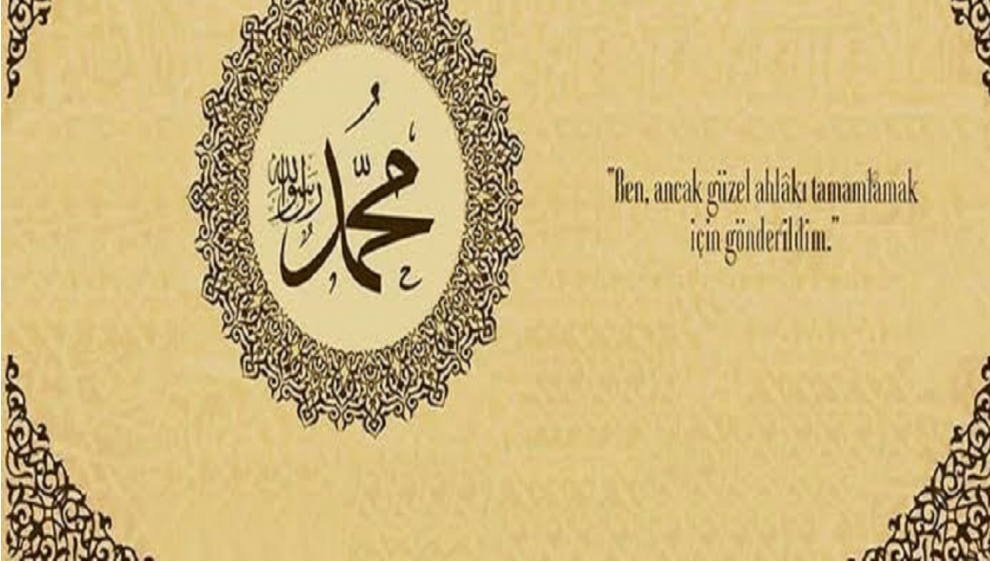 محمد
رسول الله
"Ben, ancak güzel ahlâkı tamamlamak
için gönderildim."